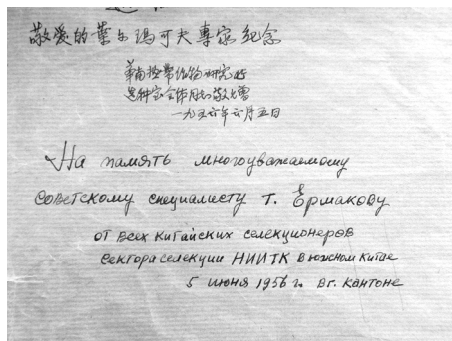 敬爱的葉尔瑪可夫專家纪念
華南热带作物研究所
选种室全体同志敬赠
一九五六年六月五日
На память многоуважаемому
советскому специалисту т. Ермакову
от всех китайских селекционеров
сектора селекции НИИТК в южном Китае
5 июня 1956 г. в г. Кантоне